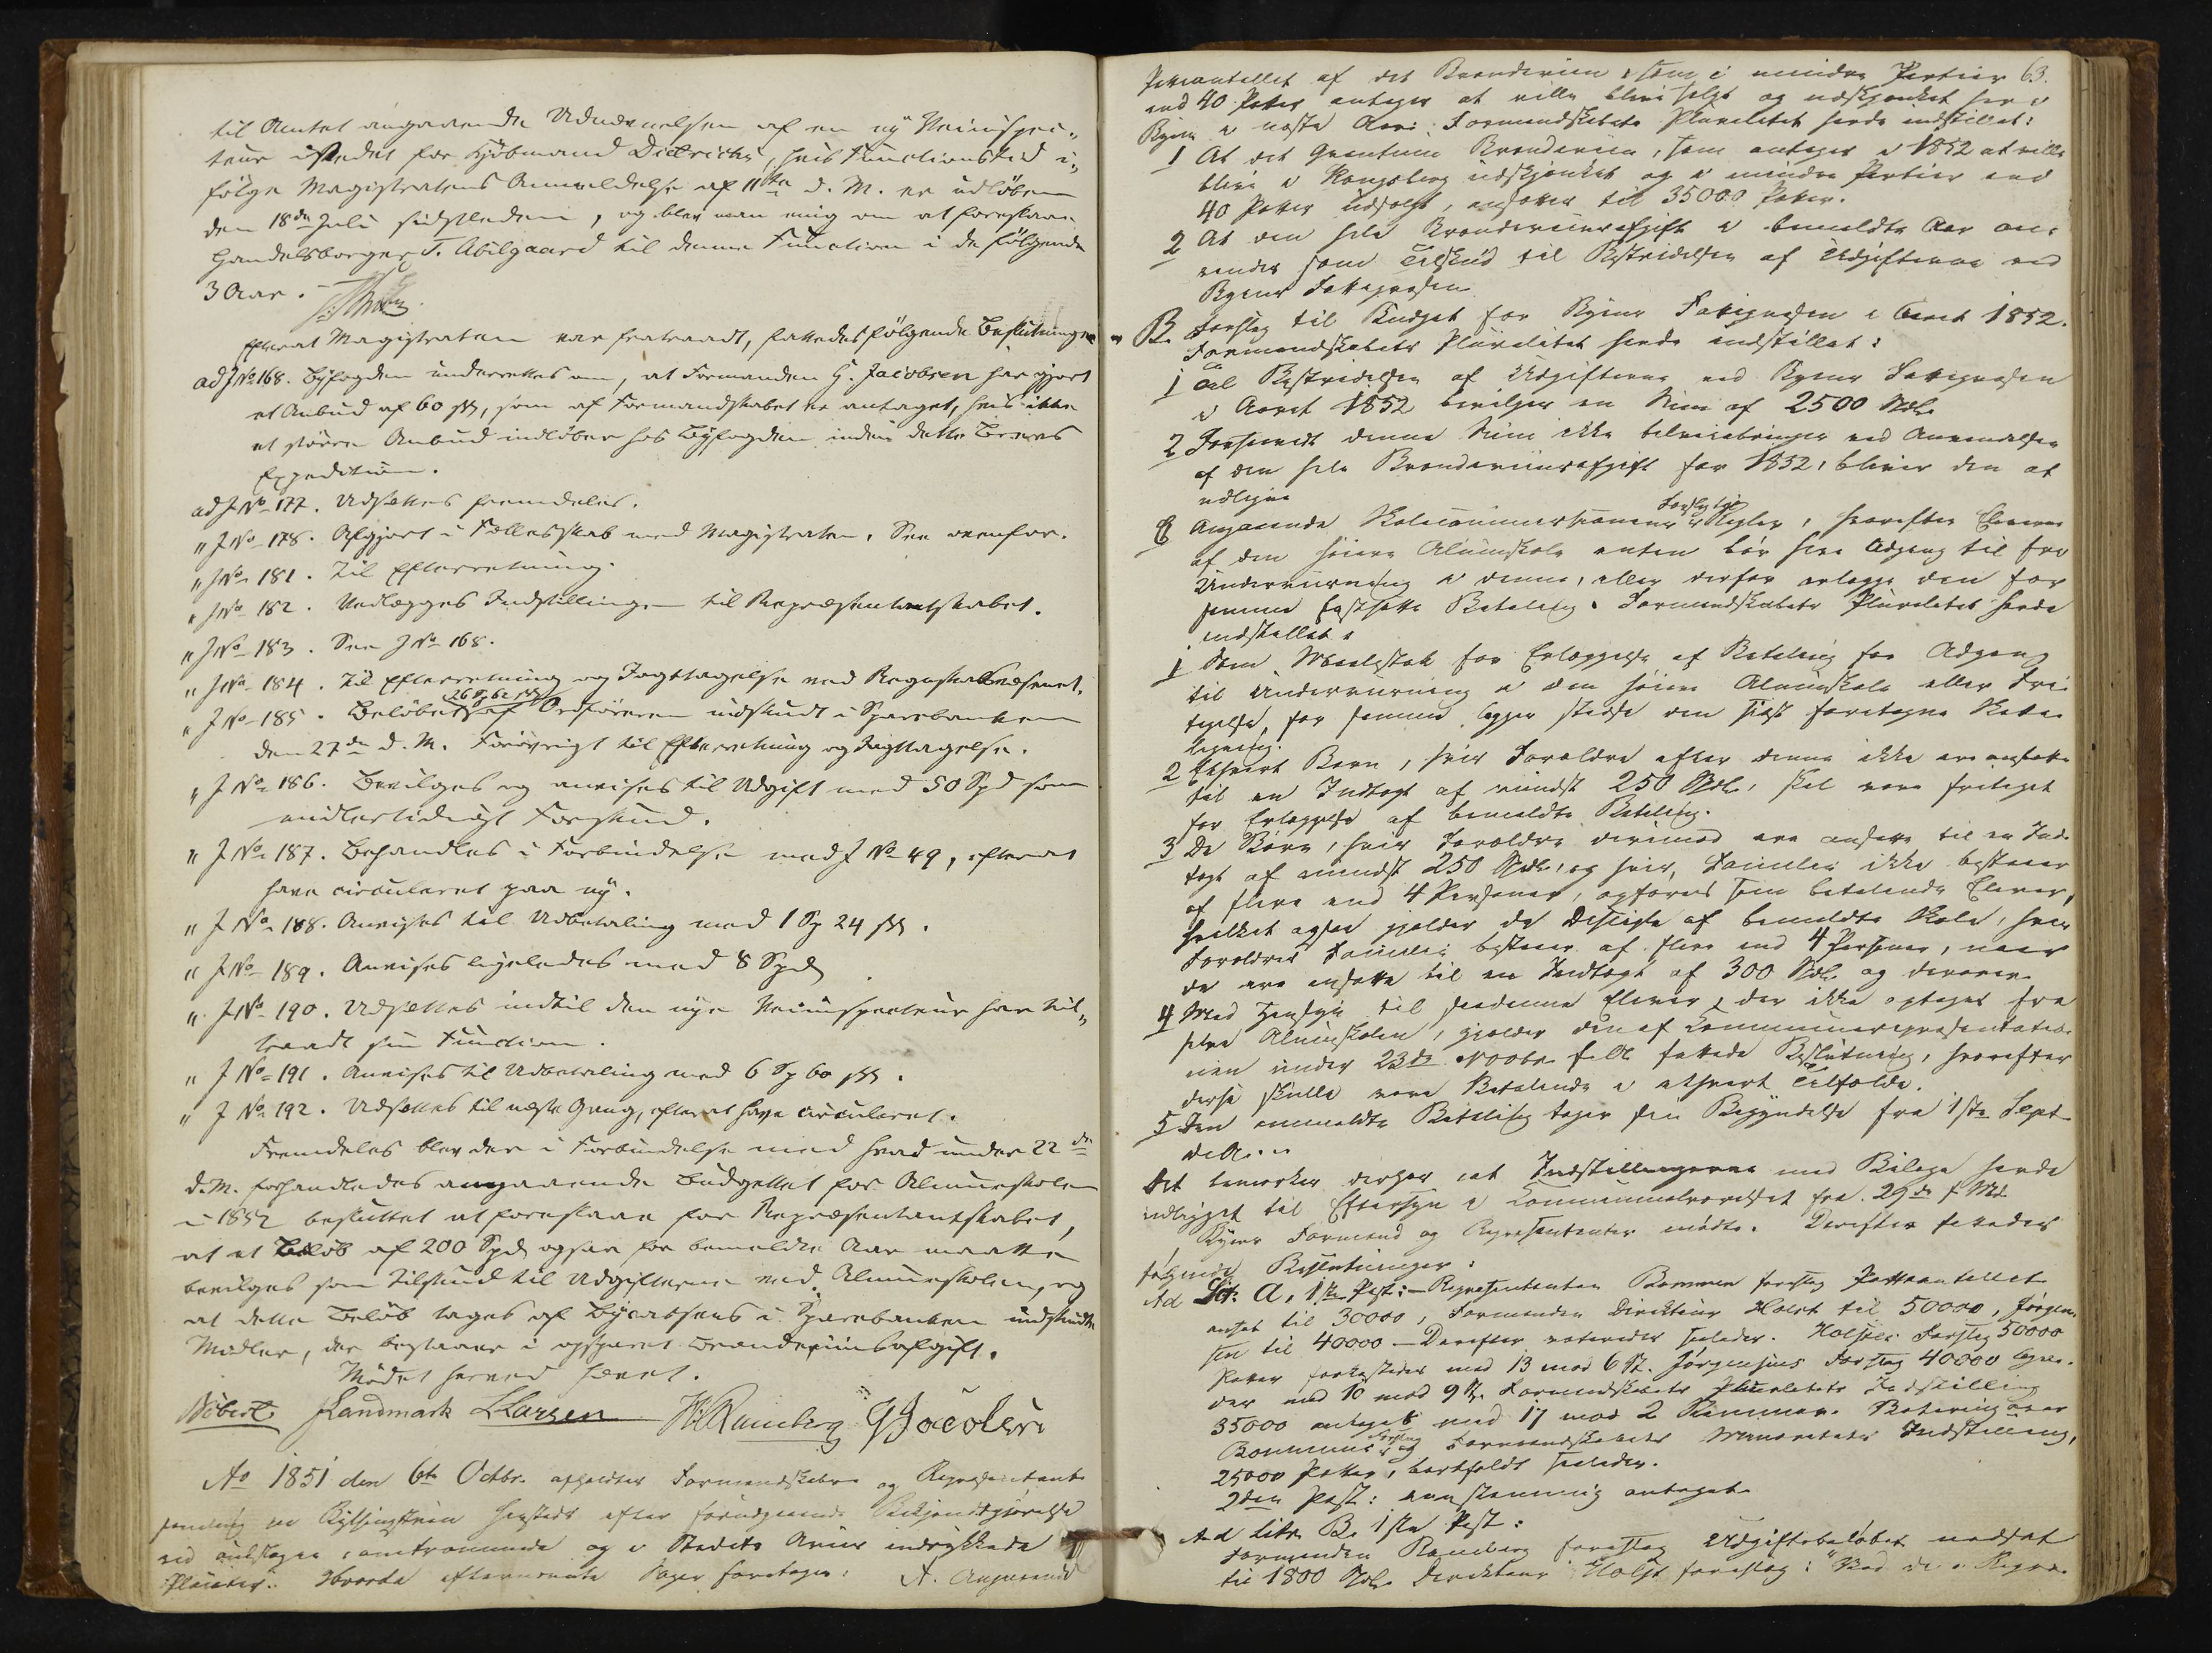 til Amtet angaaende Udnævnelsen af en ny Veiinspec„
teur istedet for Kjøbmand Dietrichs, hvis Functionstid i„
følge Magistratens Anmeldelse af 11te d. M. er udløben
den 18de Juli sidstleden, og blev man enig om at foreslaae
Handelsborger T. Abilgaard til denne Function i de følgende
3 Aar.
Efterat Magistraten var fratraadt, fattedes følgende Beslutninger
ad J No 168. Byfogden underrettes om, at Formanden G. Jacobsen har gjort
et Anbud af 60 ß, som af Formandskabet er antaget, hvis ikke
et større Anbud indløber hos Byfogden inden dette Brevs
Expedition.
ad J No 177. Udsættes fremdeles.
„ J No 178. Afgjort i Fællesskab med Magistraten. See ovenfor.
„ J No 181. Til Efterretning.
„ J No 182. Vedlægges Indstillingen til Repræsentantskabet.
„ J No 183. See J No 168.
„ J No 184. Til Efterretning og Iagttagelse ved Regnskabsvæsenet.
„ J No 185. Beløbet 26 Sp 62 ß af Ordføreren indskudt i Sparebanken
den 27de d. M. Forøvrigt til Efterretning og Iagttagelse.
„ J No 186. Bevilges og anvises til Udgift med 50 Spd som
midlertidigt Forskud.
„ J No 187. Behandles i Forbindelse med J No 49, efterat
have circuleret paa ny.
„ J No 188. Anvises til Udbetaling med 1 Sp 24 ß.
„ J No 189. Anvises ligeledes med 8 Spd
„ J No 190. Udsættes indtil den nye Veiinspecteur har til„
traadt sin Function.
„ J No 191. Anvises til Udbetaling med 6 Sp 60 ß.
„ J No 192. Udsættes til næste Gang, efterat have circuleret.
Fremdeles blev der i Forbindelse med hvad under 22de
d. M. forhandledes angaaende Budgettet for Almueskolen
i 1852 besluttet at foreslaae for Repræsentantskabet,
at et Beløb af 200 Spd ogsaa for bemeldte Aar maatte
bevilges som Tilskud til Udgifterne ved Almueskolen, og
at dette Beløb tages af Bycassens i Sparebanken indskudte
Midler, der bestaaer i opsparet Brændeviinsafgift.
Mødet herved hævet.
Landmark L Larsen H. Ramberg G Jacobsen
Ao 1851 den 6te Octbr. afholdtes Formandskabs og Repræsentant
samling paa Bythingstuen hersteds efter foregaaende Bekjendtgjørelse
ved opslagne og i Stedets Avis indrykkede
Placater. Hvorda efternævnte Sager foretoges: A. Angaaende
63.
Potteantallet af det Brændeviin, som i mindre Partier
end 40 Potter antages at ville blive solgt og udskjænket her i
Byen i næste Aar. Formandskabets Pluralitet havde indstillet:
1 At det Qvantum Brændeviin, som antages i 1852 at ville
blive i Kongsberg udskjænket og i mindre Partier end
40 Potter udsolgt, ansættes til 35000 Potter.
2 At den hele Brændeviinsafgift i bemeldte Aar an-
vendes som Tilskud til Bestridelsen af Udgifterne ved
Byens Fattigvæsen
B. Forslag til Budget for Byens Fattigvæsen i Aaret 1852.
Formandskabets Pluralitet havde indstillet:
1 Til Bestridelsen af Udgifterne ved Byens Fattigvæsen
i Aaret 1852 bevilges en Sum af 2500 Spdlr
2 Forsaavidt denne Sum ikke tilveiebringes ved Anvendelsen
af den hele Brændeviinsafgift for 1852, bliver den at
udligne
C Angaaende Skolecommissionens Forslag til Regler, hvorefter Eleverne
af den høiere Almueskole enten bør have Adgang til fri
Underviisning i denne, eller derfor erlægge den for
samme fastsatte Betaling. Formandskabets Pluralitet havde
indstillet:
1 Som Maalestok for Erlæggelse af Betaling for Adgang
til Underviisning i den høiere Almueskole eller Fri-
tagelse for samme lægges stedse den sidst foretagne Skatte-
ligning.
2 Ethvert Barn, hvis Forældre efter denne ikke ere ansatte
til en Indtægt af mindst 250 Spdlr, skal være fritaget
for Erlæggelse af bemeldte Betaling.
3 De Børn, hvis Forældre derimod ere ansatte til en Ind-
tægt af mindst 250 Spdlr, og hvis Familie ikke bestaaer
af flere end 4 Personer, opføres som betalende Elever,
hvilket ogsaa gjælder de Disciple af bemeldte Skole, hvis
Forældres Familie bestaaer af flere end 4 Personer, naar
de ere ansatte til en Indtægt af 300 Spdlr og derover.
4 Med Hensyn til saadanne Elever, der ikke optages fra
selve Almueskolen, gjælder den af Communerepræsentatio-
nen under 23de Novbr fattede Beslutning, hvorefter
disse skulle være Betalende i ethvert Tilfælde.
5 Den anmeldte Betaling tager sin Begyndelse fra 1ste Sept
Det bemærkes derhos at Indstillingerne med Bilage havde
udligget til Eftersyn i Communelocalet fra 29de f. Md
Byens Formænd og Repræsentanter mødte. Derefter fattedes
følgende Beslutninger:
Ad Litr. A, 1ste Post: Repræsentanten Bommen foreslog Potteantallet
ansat til 30000, Formanden Directeur Holst til 50000, Jørgen-
sen til 40000 — Derefter voteredes saaledes. Holsts Forslag 50000
Potter forkastedes med 13 mod 6 St. Jørgensens Forslag 40000 ligele-
des med 10 mod 9 St. Formandskabets Pluralitets Indstilling
35000 antoges med 17 mod 2 Stemmer. Votering over
Bommens Forslag og Formandskabets Minoritets Indstilling,
25000 Potter, bortfaldt saaledes.
2den Post: eenstemmig antaget.
Ad Litr. B. 1ste Post:
Formanden Ramberg foreslog Udgiftsbeløbet nedsat
til 1800 Spdlr. Directeur Holst foreslog: "Ved de i Regn-